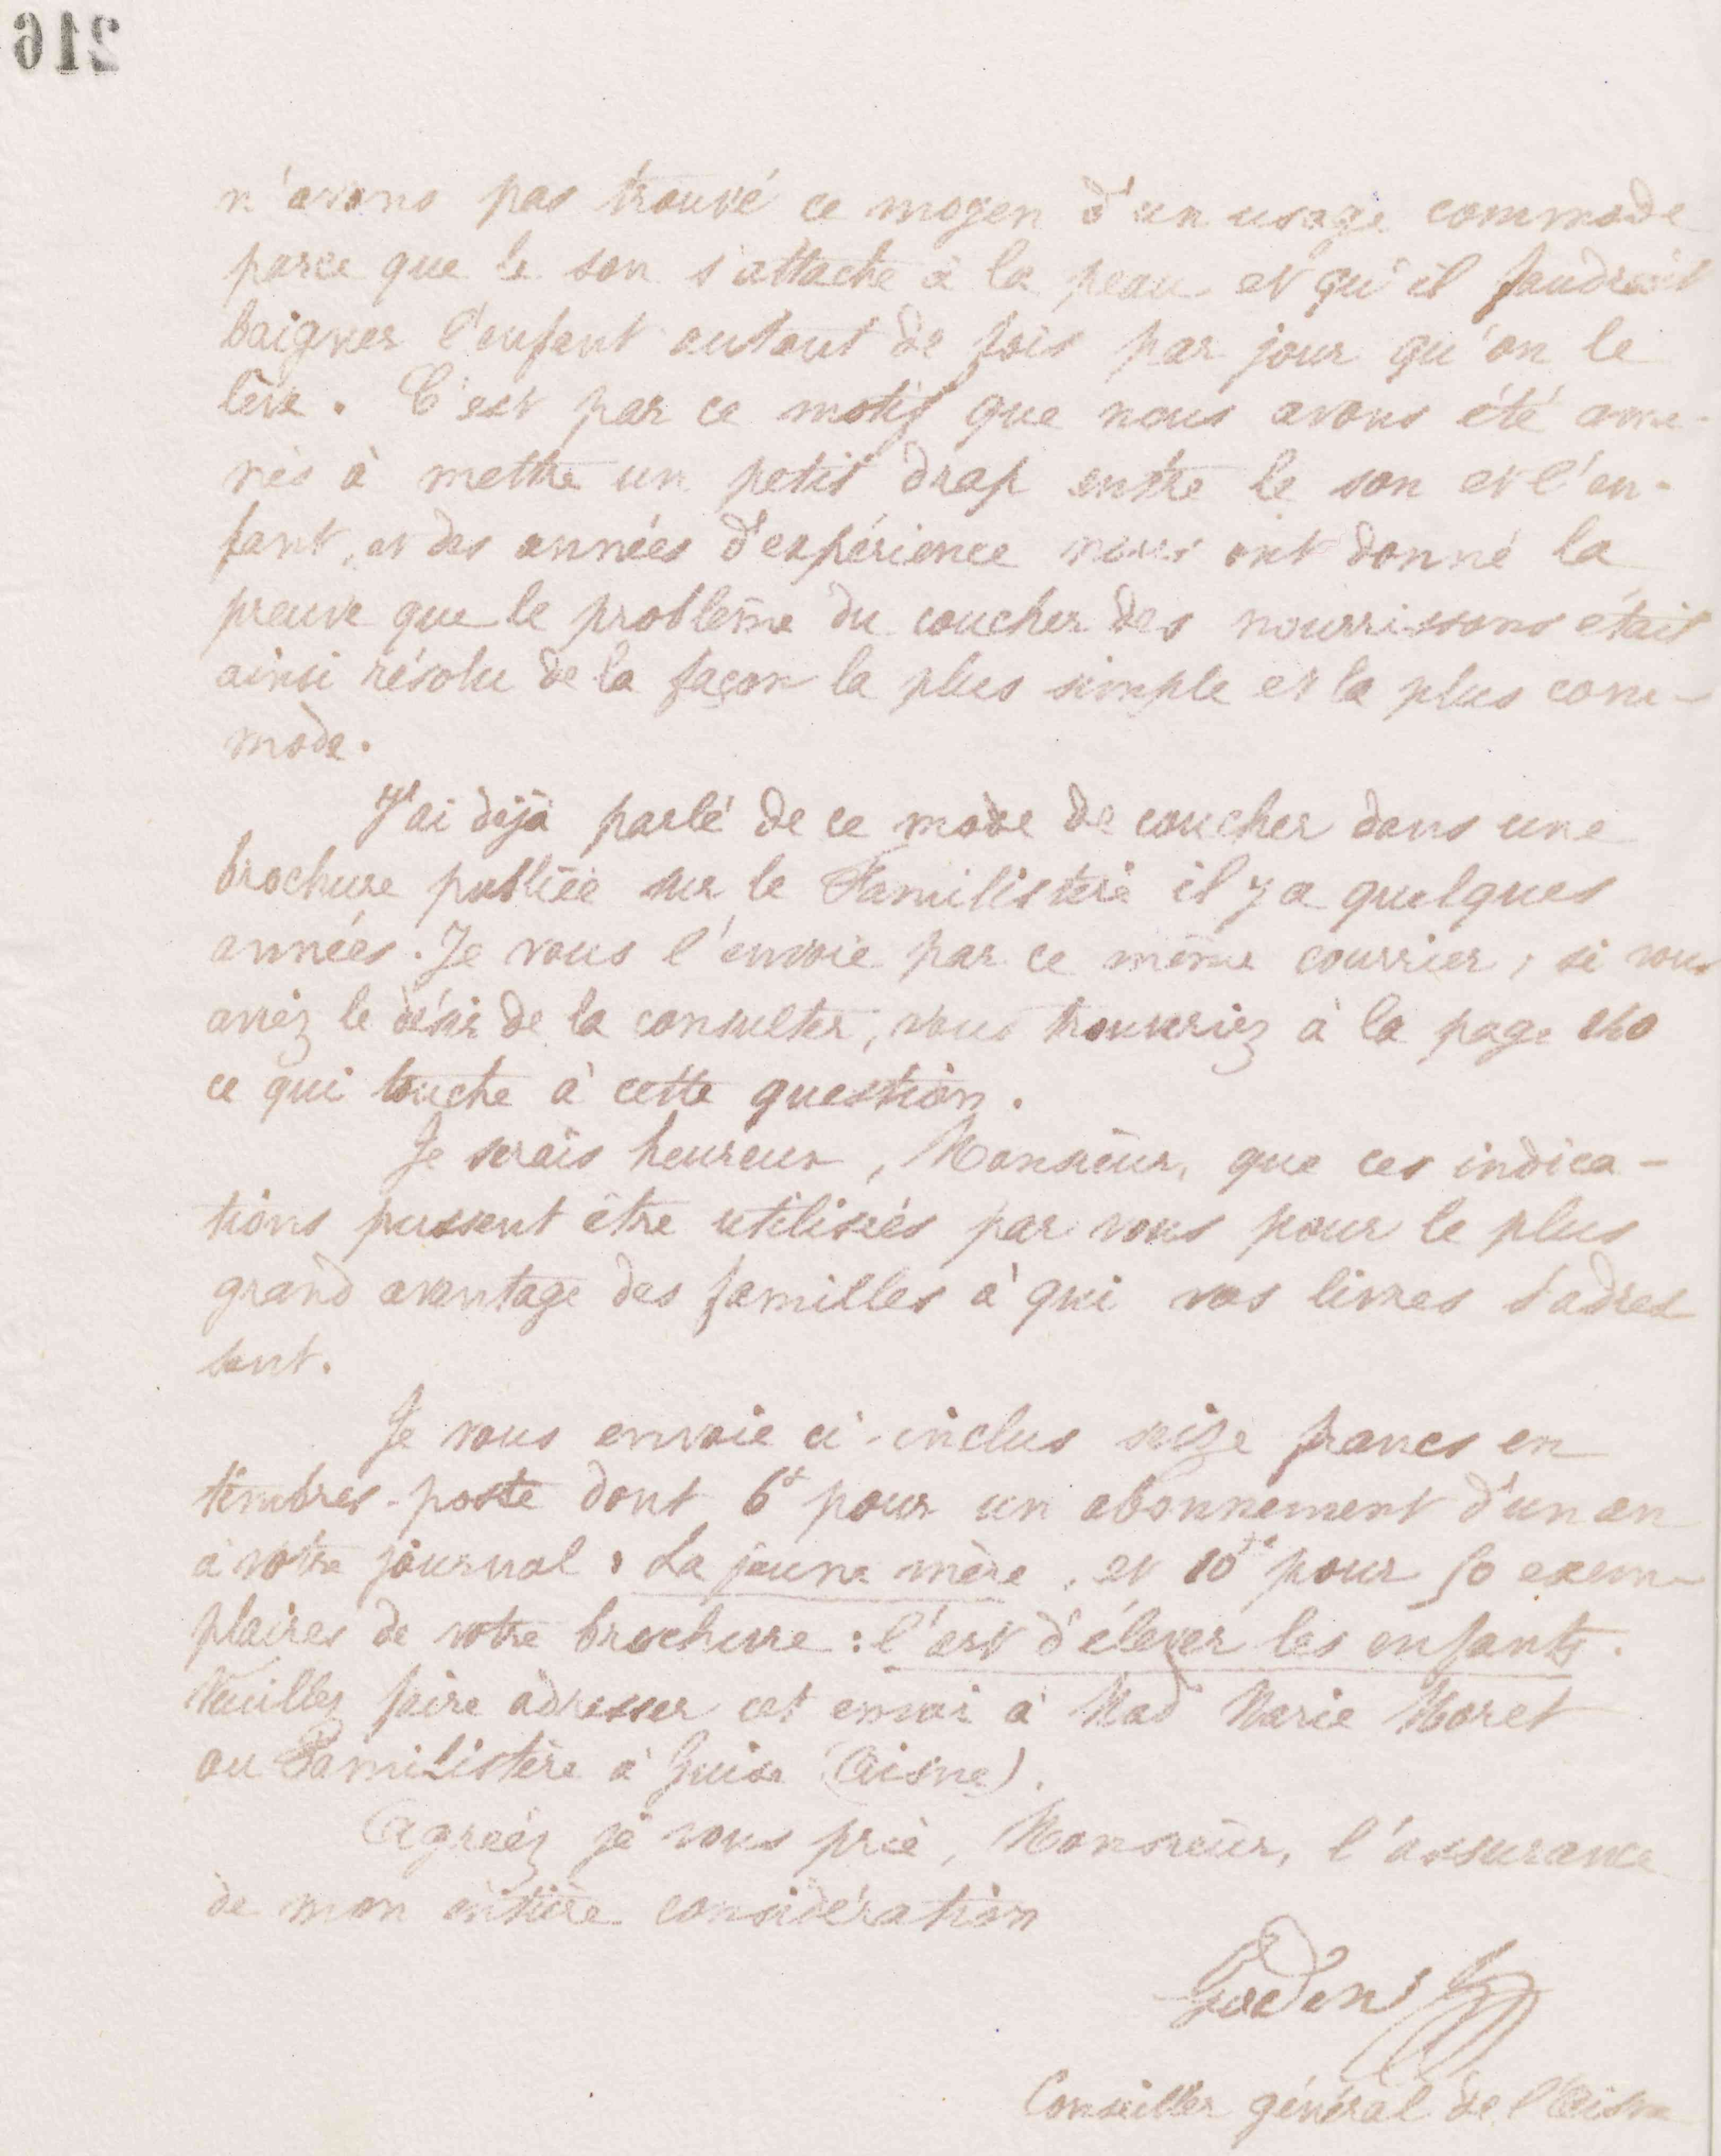 216
n'avons pas trouvé ce moyen d'un usage commode
parce que le son s'attache à la peau et qu'il faudrait
baigner l'enfant autant de fois par jour qu'on le
lève. C'est par ce motif que nous avons été ame-
nés à mettre un petit drap entre le son et l'en-
fant, et des années d'expérience nous ont donné la
preuve que le problème du coucher des nourrissons était
ainsi résolu de la façon la plus simple et la plus com-
mode.
J'ai déjà parlé de ce mode de coucher dans une
brochure publiée sur le Familistère il y a quelques
années. Je vous l'envoie par ce même courrier, si vous
aviez le désir de la consulter, vous trouveriez à la page
ce qui touche à cette question.
Je serais heureux, Monsieur, que ces indica-
tions pussent être utilisées par vous pour le plus
grand avantage des familles à qui vos livres s'adres
sent.
Je vous envoie ci-inclus seize francs en
timbres-poste dont 6f pour un abonnement d'un an
à votre journal : La jeune mère, et 10f pour 50 exem-
plaires de votre brochure : l'art d'élever les enfants.
Veuillez faire adresser cet envoi à Mad Marie Moret
au Familistère à Guise (Aisne).
Agréez je vous prie, Monsieur, l'assurance
de mon entière considération
Godin
Conseiller général de l'Aisne